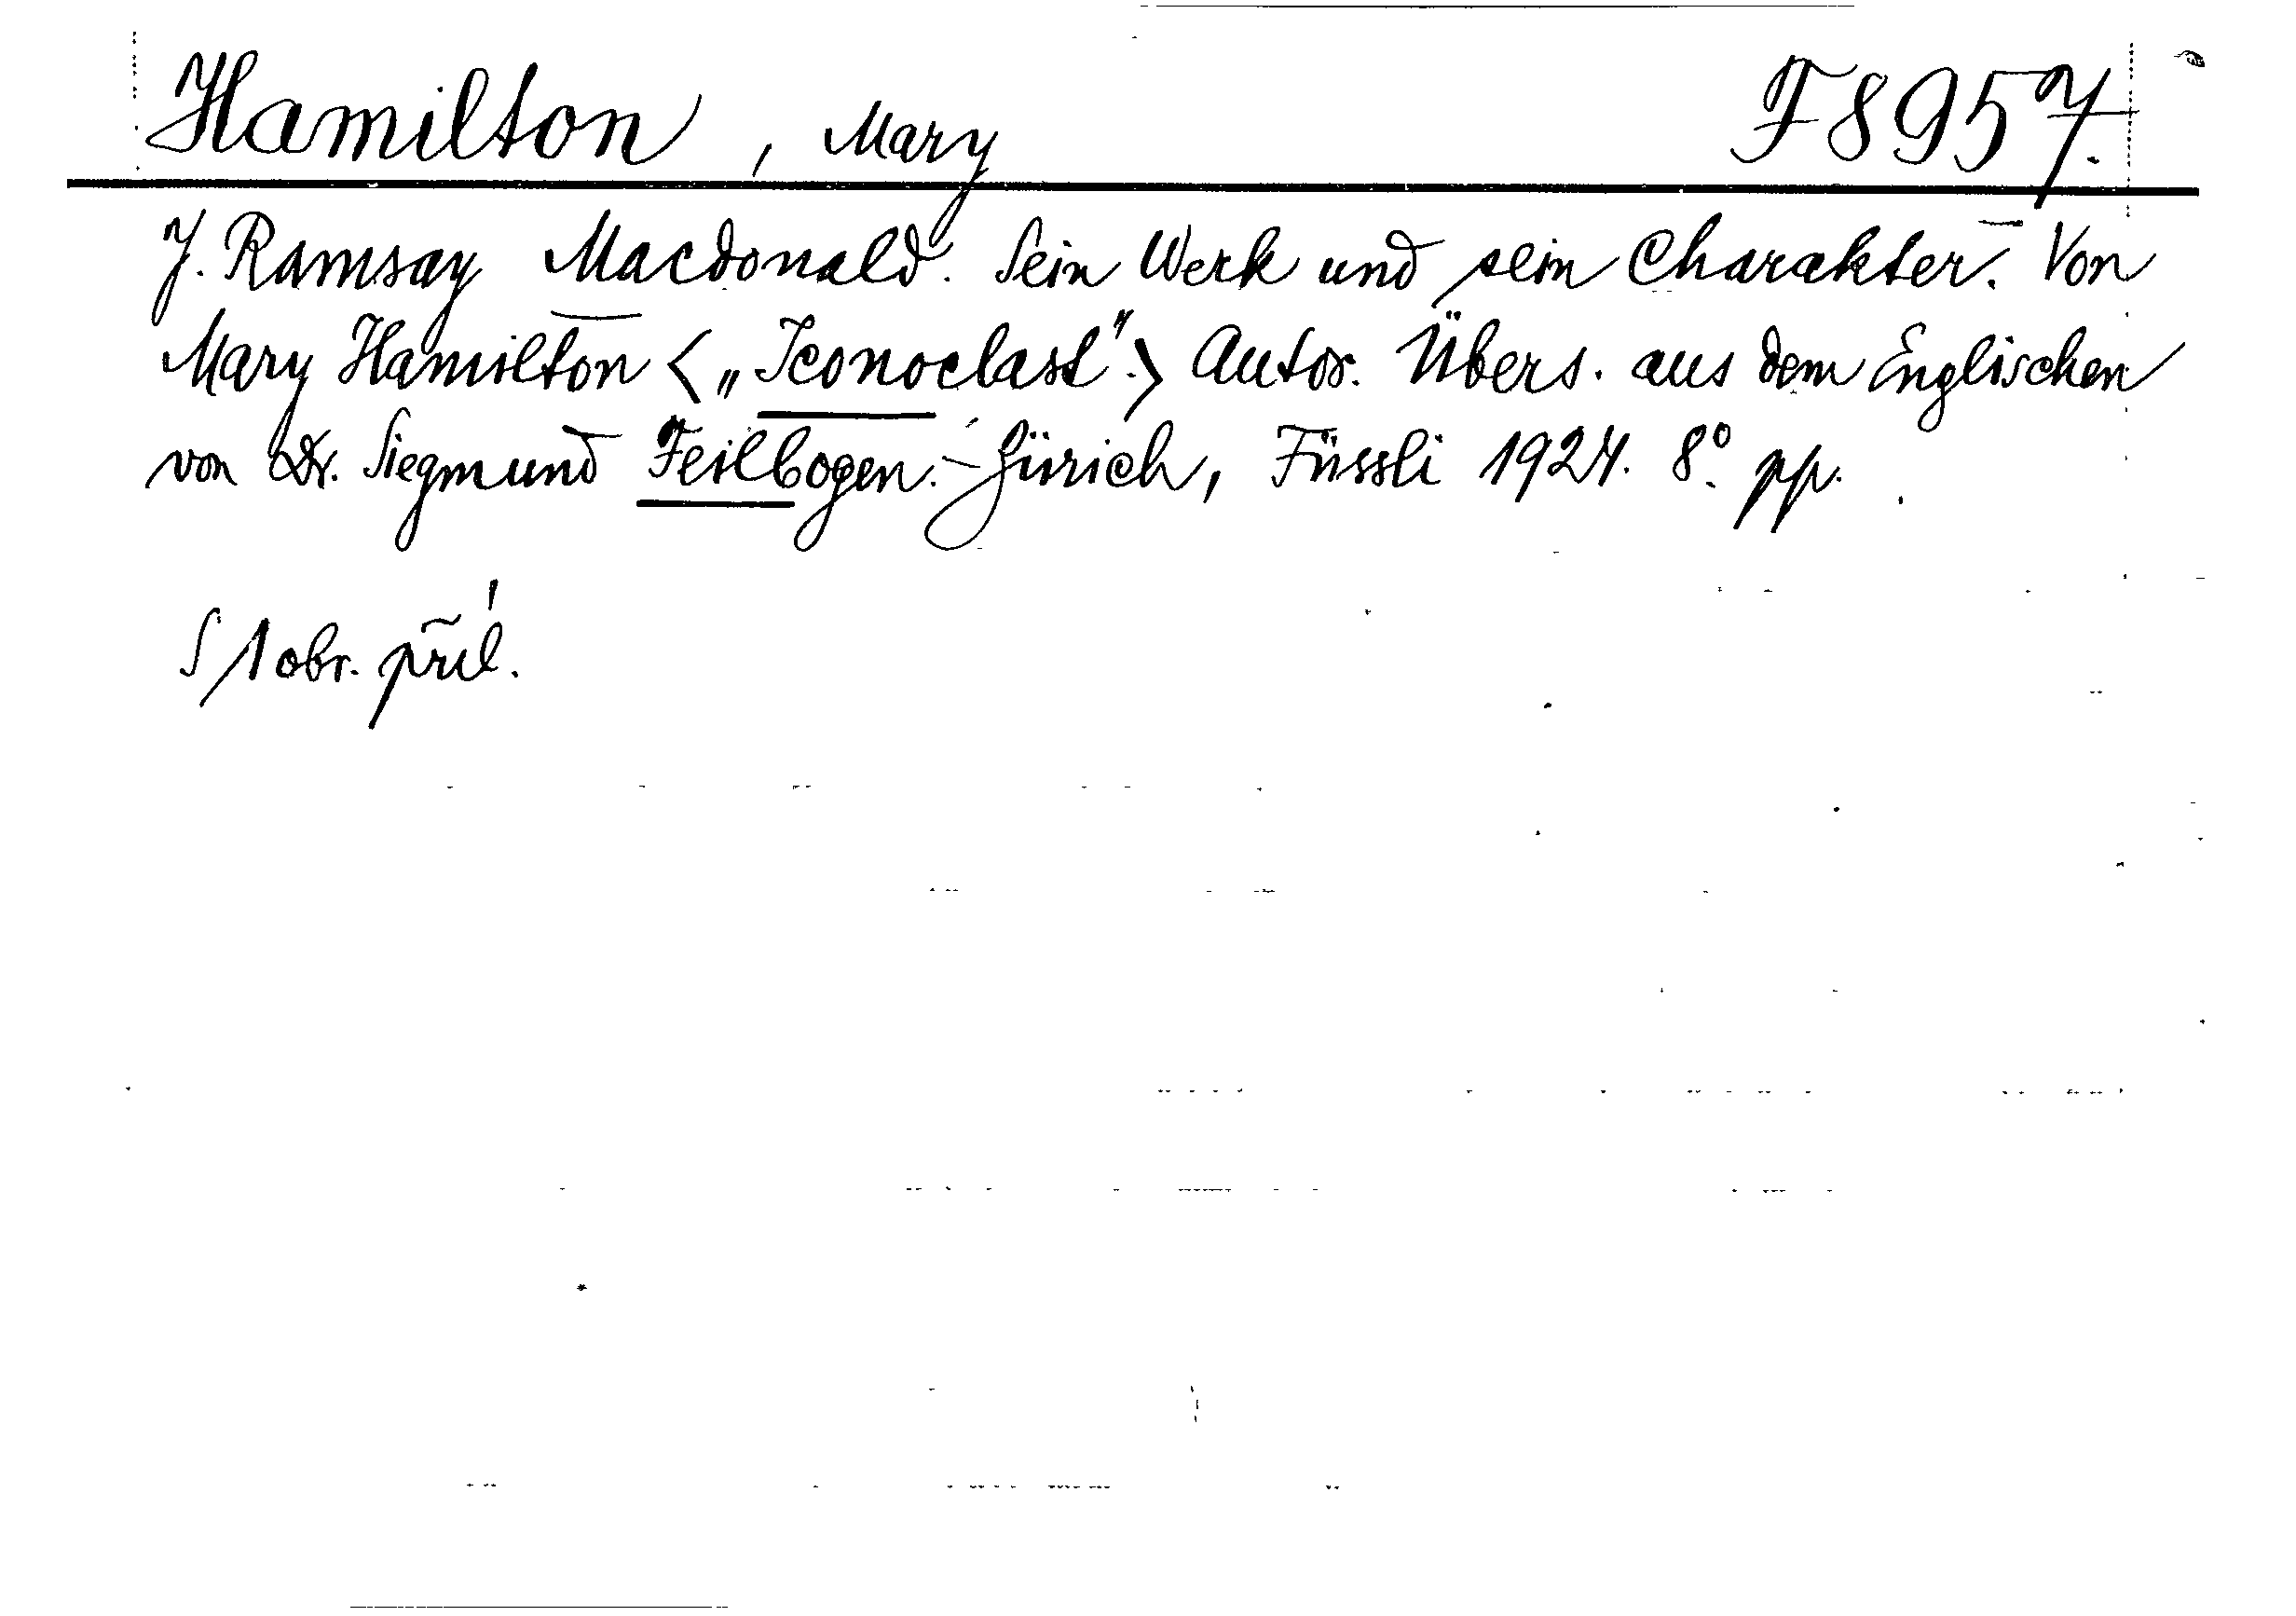 Hamilton, Mary F 8957.
J. Ramsay Macdonald. Sein Werk und sein Charakter. Von
Mary Hamilton < „Iconoclast“. > Autor. Übers. aus dem Englischen
von Dr. Siegmund Feilbogen. - Zürich, Füssli 1924. 8° pp.
S 1 obr. příl.